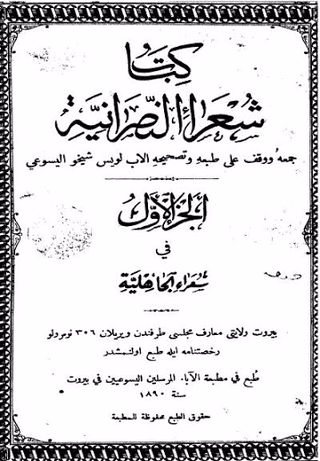 كتاب
شعراء النصرانية
جمعه ووقف على طبعه وتصحيحه الاب لويس شيخو اليسوعي
الجزء الاول
في
شعراء الجاهلية
بيروت ولايتى معارف مجلسى طرفندن ويريلان ٣٠٦ نومرولو
رخصتنامه ايله طبع اولنمشدر
طبع في مطبعة الآباء المرسلين اليسوعيين في بيروت
سنة ١٨٩٠
حقوق الطبع محفوظة للمطبعة